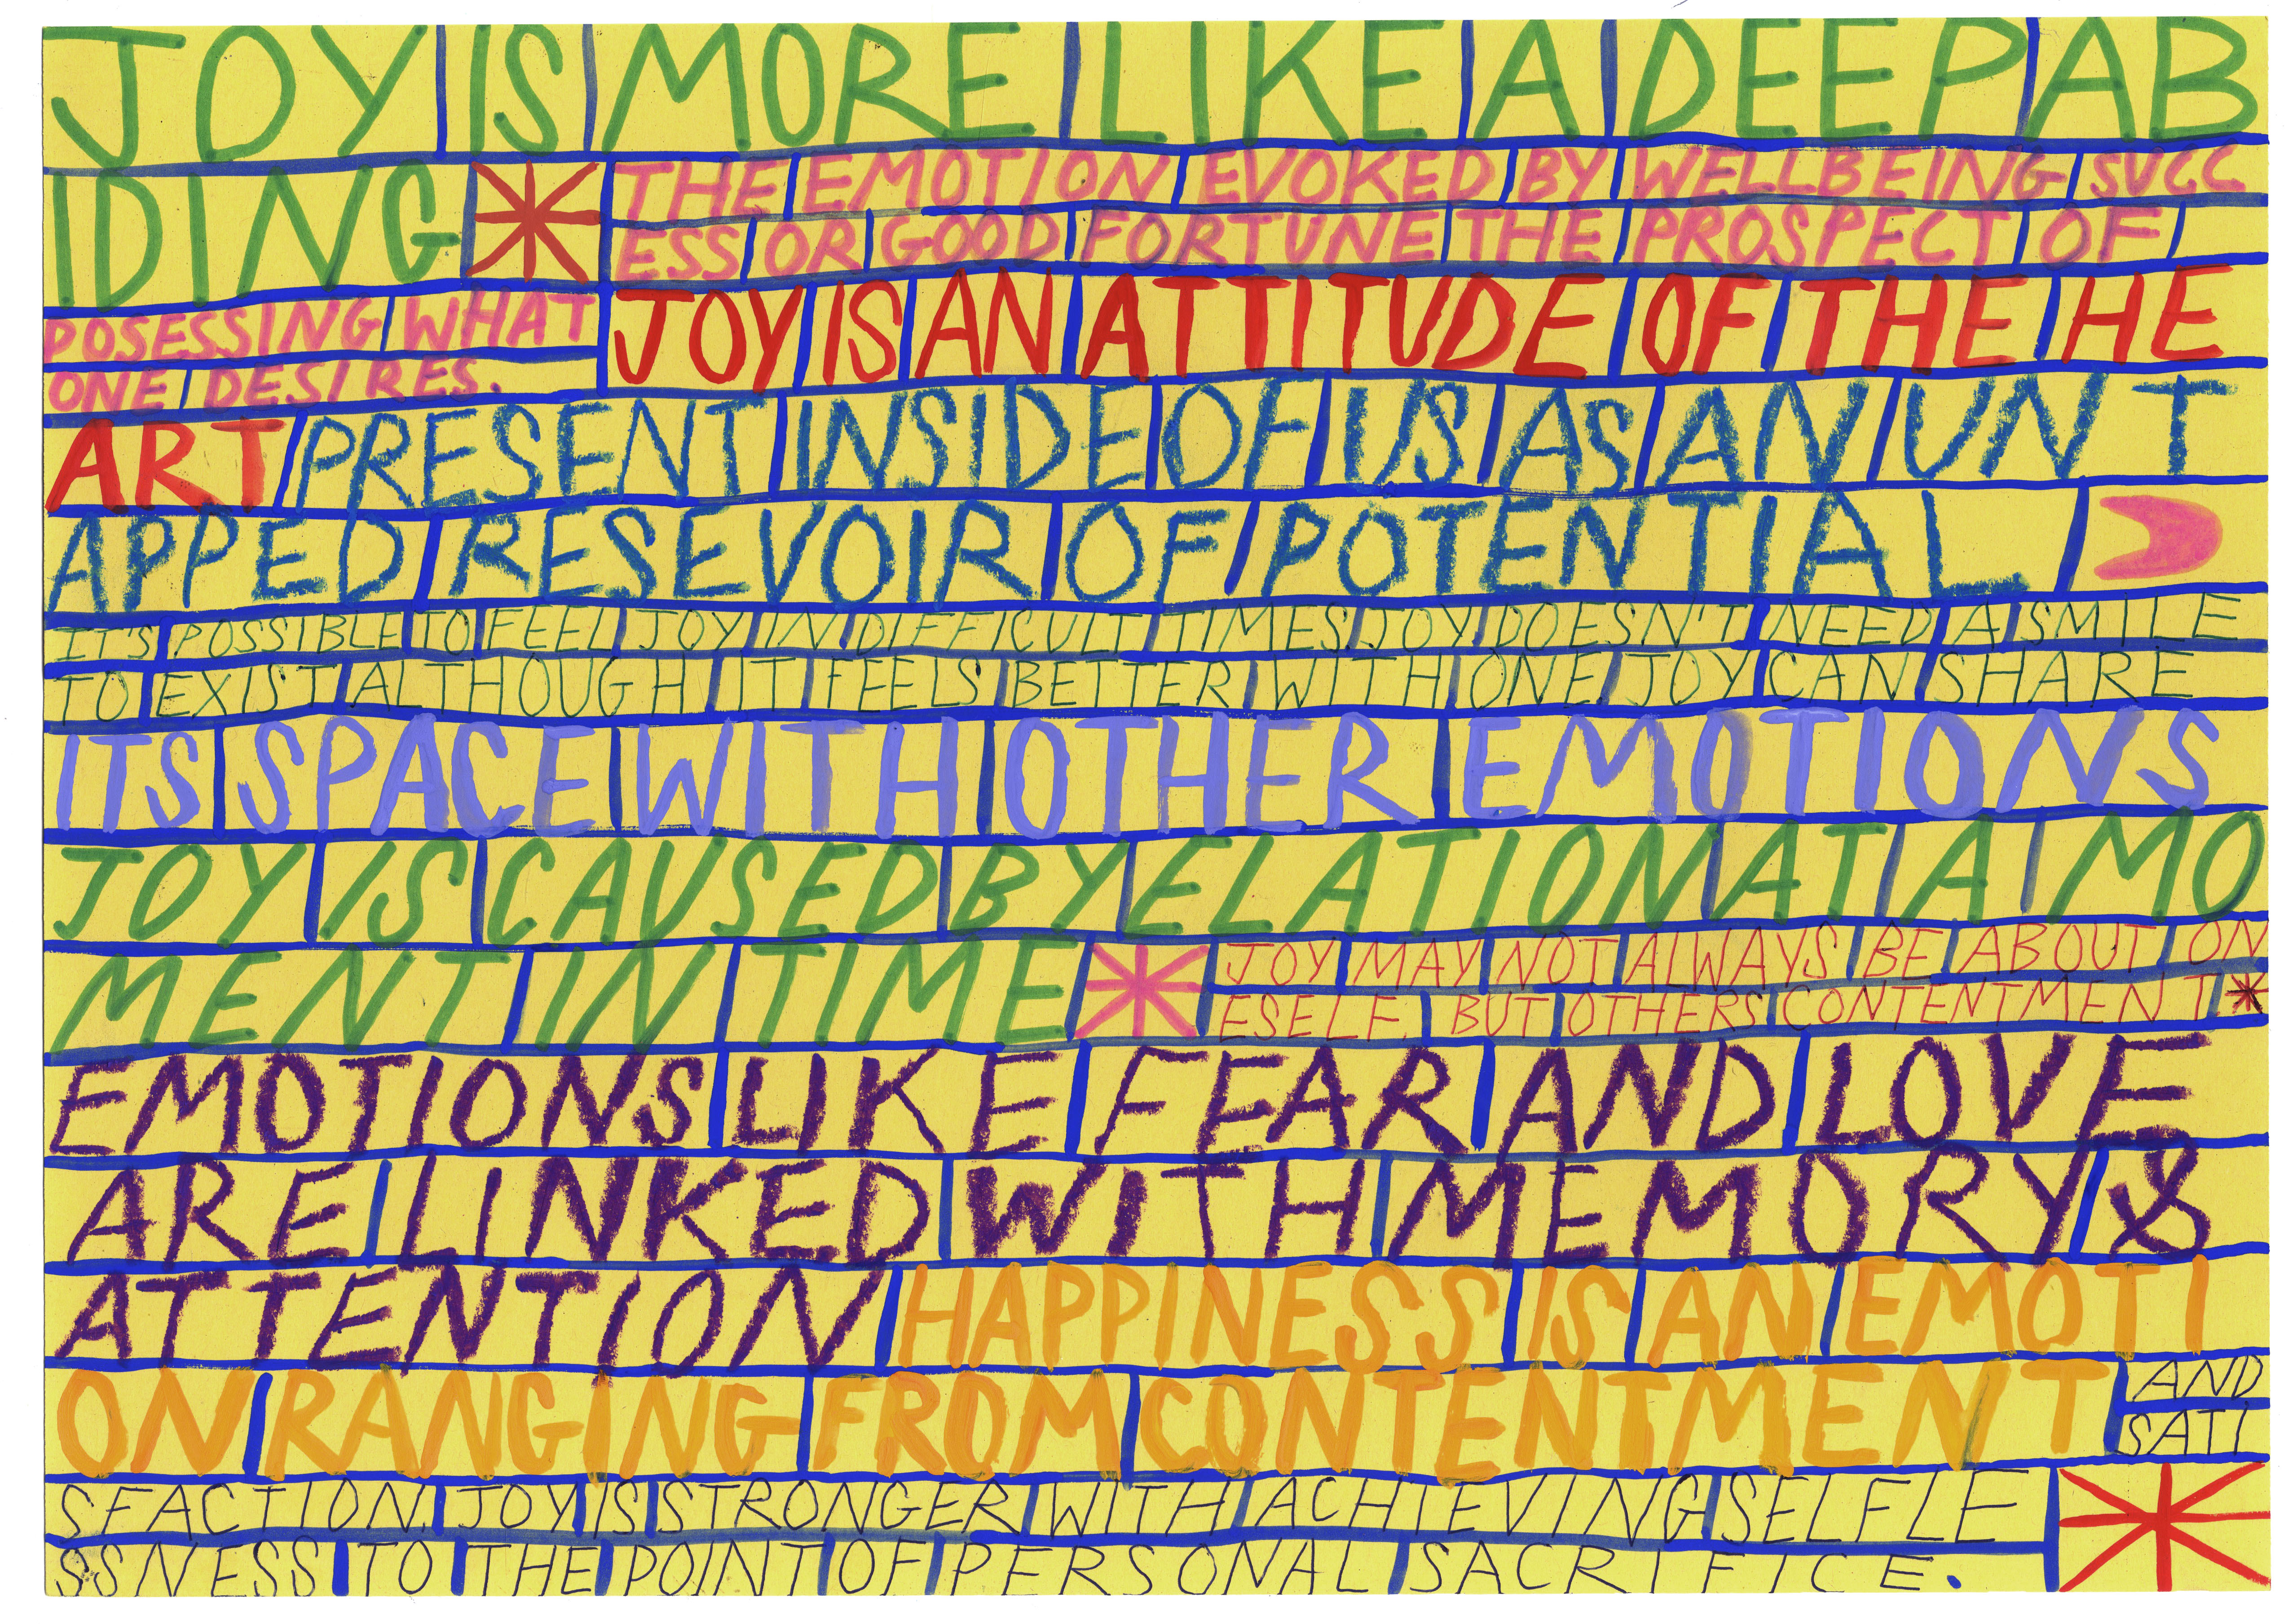 JOY IS MORE LIKE A DEEP AB
IDING
THE EMOTION EVOKED BY WELLBEING SUCC
ESS OR GOOD FORTUNE THE PROSPECT OF
POSESSING WHAT
ONE DESIRES.
JOY IS AN ATTITUDE OF THE HE
ART PRESENT INSIDE OF US AS AN UNT
APPED RESEVOIR OF POTENTIAL
IT'S POSSIBLE TO FEEL JOY IN DIFFICULT TIMES JOY DOESN'T NEED A SMILE
TO EXIST ALTHOUGH IT FEELS BETTER WITH ONE JOY CAN SHARE
ITS SPACE WITH OTHER EMOTIONS
JOY IS CAUSED BY ELATION AT A MO
MENT IN TIME
JOY MAY NOT ALWAYS BE ABOUT ON
ESELF BUT OTHERS CONTENTMENT
EMOTIONS LIKE FEAR AND LOVE
ARE LINKED WITH MEMORY &
ATTENTION HAPPINESS IS AN EMOTI
ON RANGING FROM CONTENTMENT
AND
SATI
SFACTION. JOY IS STRONGER WITH ACHIEVING SELFLE
SSNESS TO THE POINT OF PERSONAL SACRIFICE.